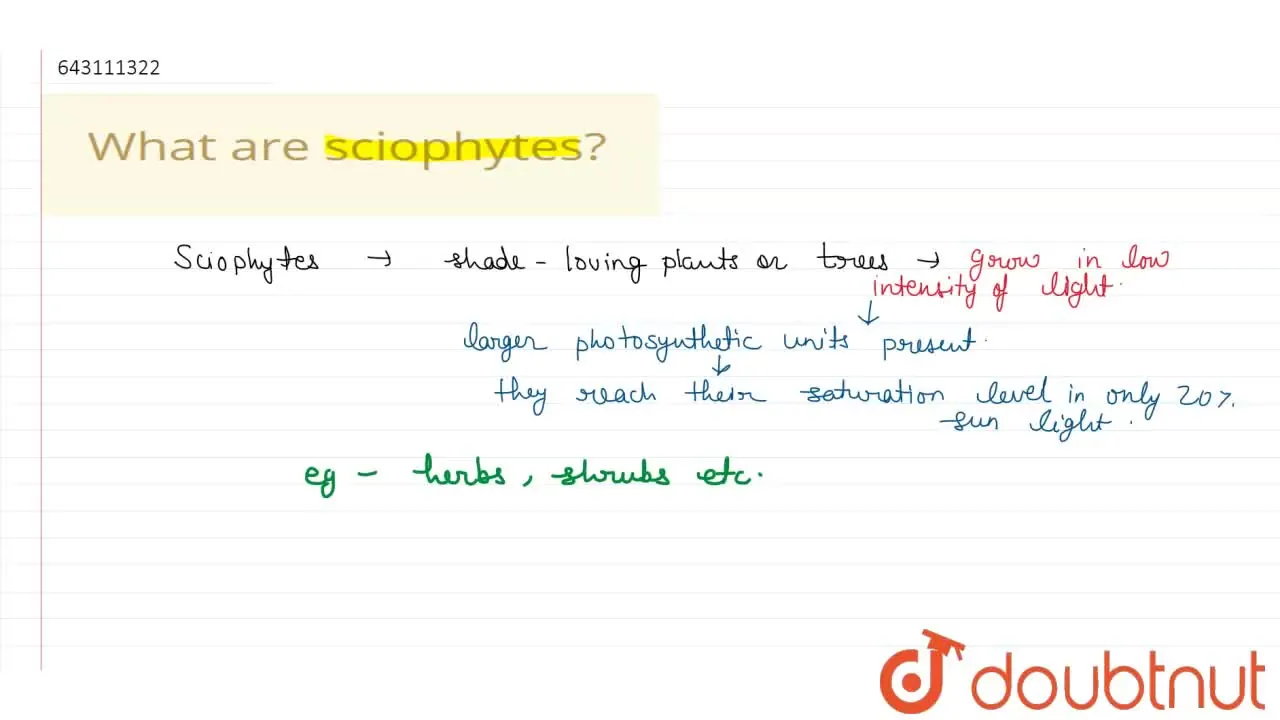 643111322
What are sciophytes?
Sciophytes → shade-loving plants or trees → Grow in low
intensity of light.
↓
larger photosynthetic units present.
↓
they reach their saturation level in only 20%.
sun light.
eg - herbs, shrubs etc.
doubtnut